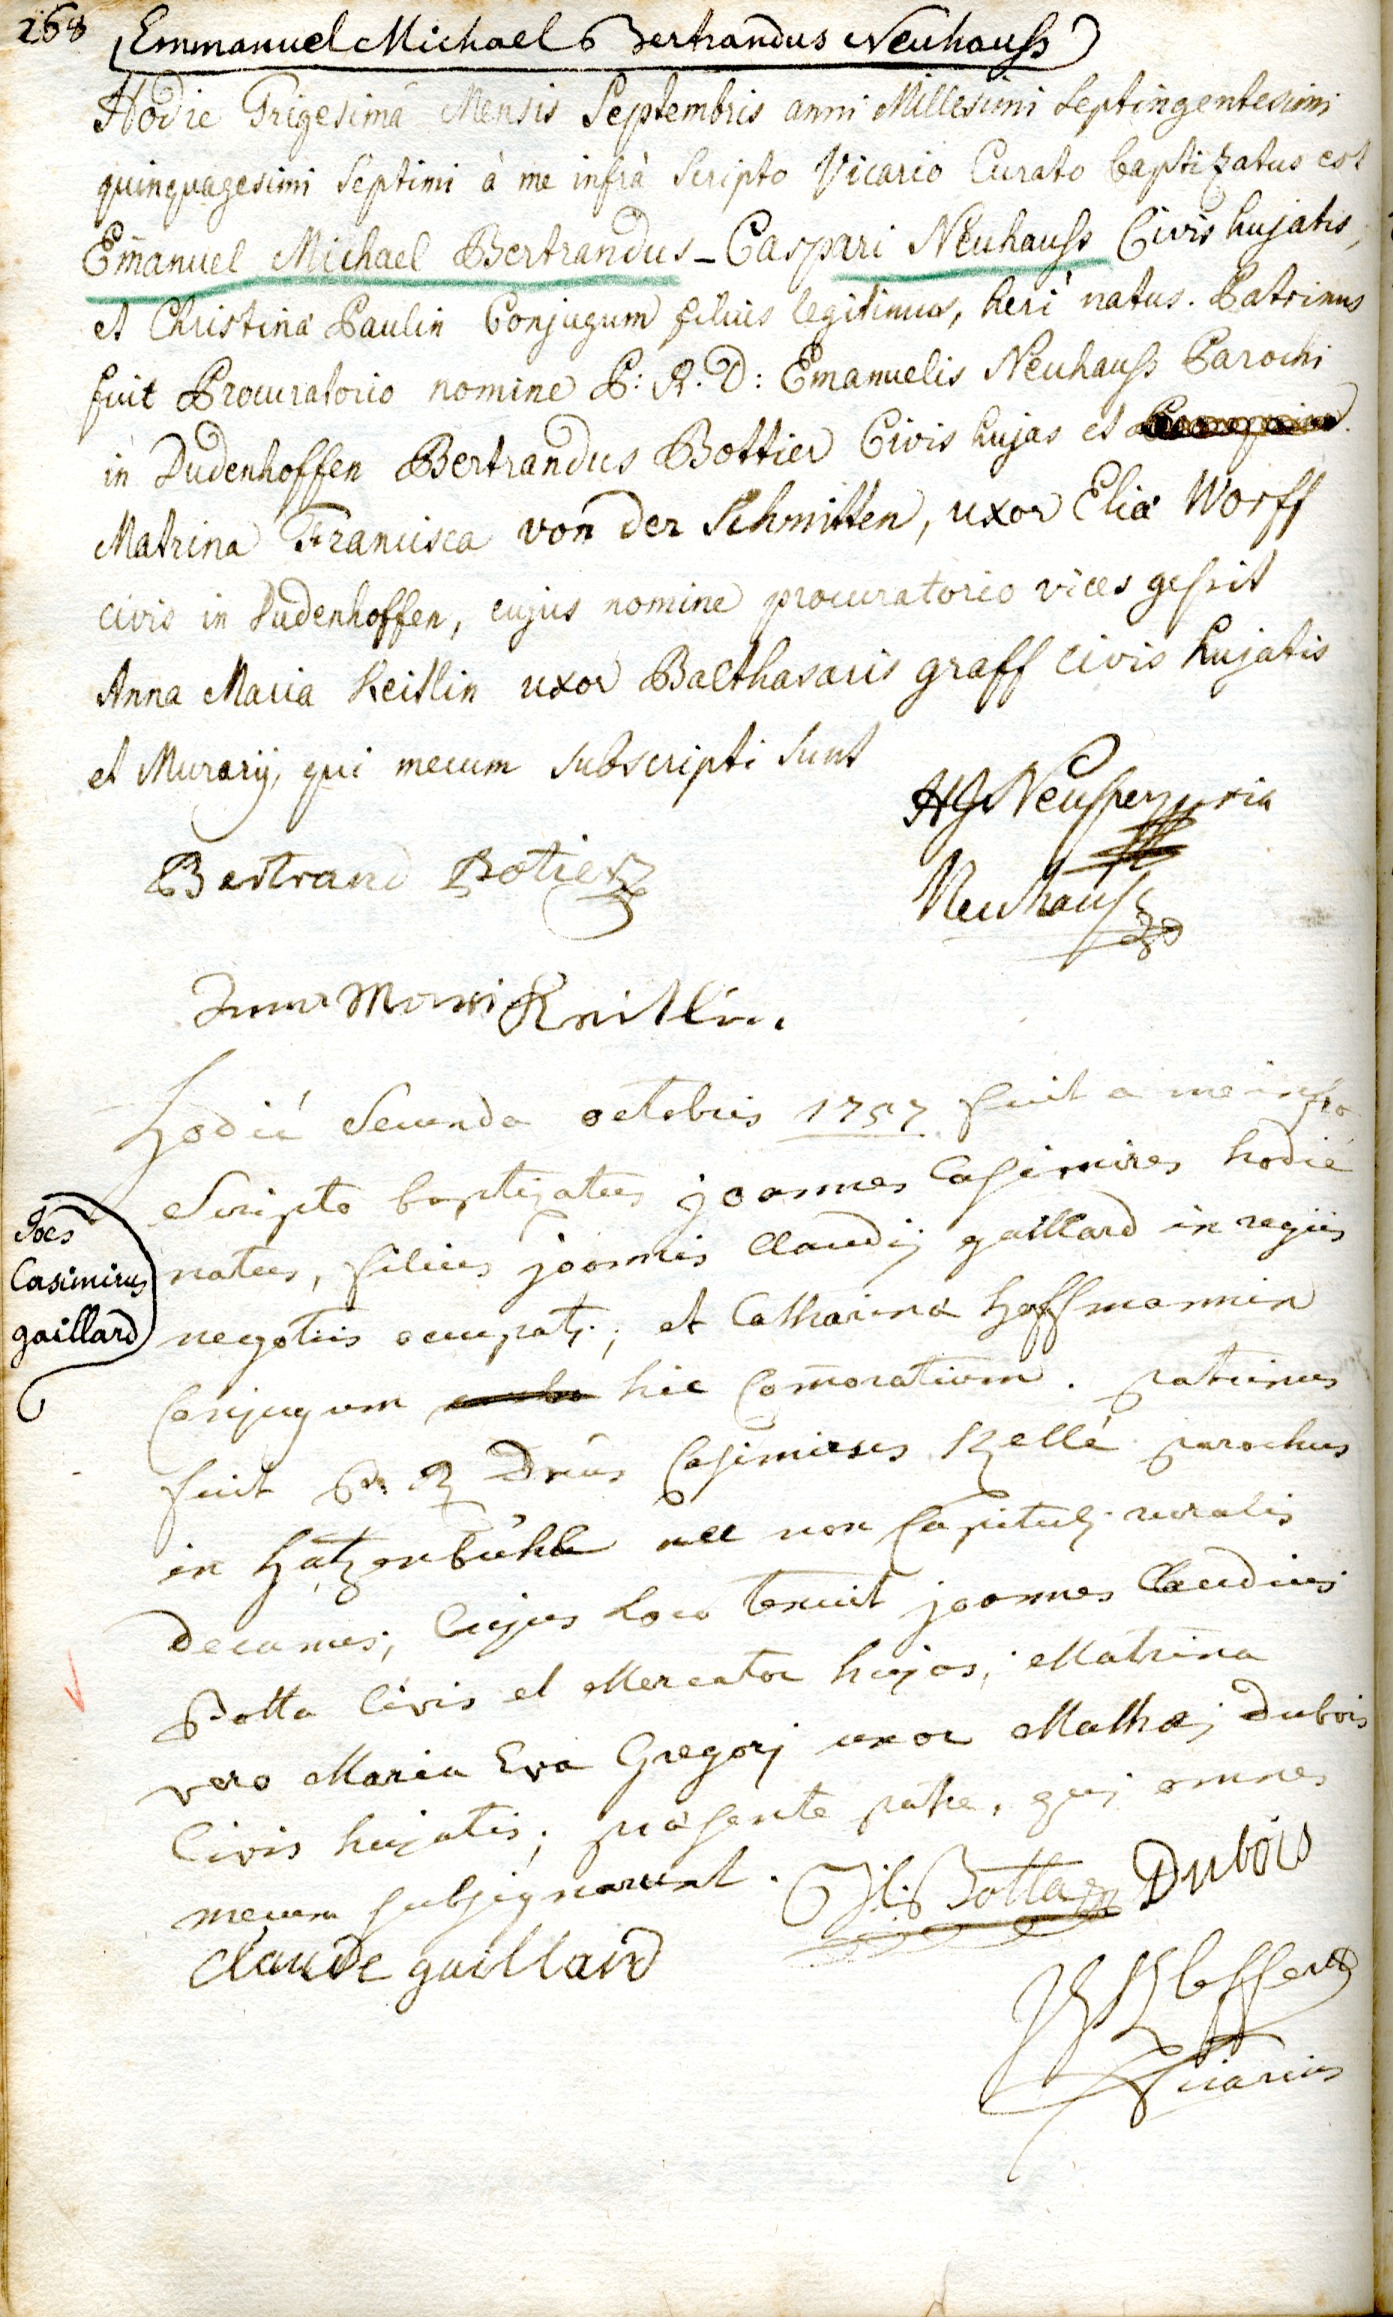 268
Emmanuel Michael Bertrandus Neuhauß
Hodie Trigesimâ Mensis Septembris anni Millesimi Septingentesimi
quinquagesimi Septimi à me infrà Scripto Vicario Curato baptizatus est
Em̄anuel Michael Bertrandus - Caspari Neuhauss Civis hujatis,
et Christina Paulin Conjugum filius legitimus, heri natus. Patrinus
fuit Procuratorio nomine P: R. D: Emanuelis Neuhauss Parochi
in Dudenhoffen Bertrandus Bottier Civis hujas et
Matrina Francisca von der Schmitten, uxor Eliæ Worff
civis in Dudenhoffen, cujus nomine procuratorio vices gessit
Anna Maria Keitlin uxor Balthasaris graff civis hujatis
et Murarij, qui mecum subscripti sunt
Bertrand Botier
Neuhauss
Hodié Secunda octobris 1757 fuit a me infra
Scripto baptizatus joannes Casimirus hodié
natus, filius joannis Claudij gaillard in regiis
negotiis occupati, et Catharinæ hoffmannin
Conjugum hic Com̄orantium. patrinus
fuit P. R Dnūs Casimirus Kellé parochus
in Hatzenbühl nec non Capituli ruralis
decanus, Cujus loco tenuit joannes Claudius
Botta Civis et Mercator hujas, Matrina
vero Maria Eva Gregorj uxor Mathæj Dubois
Civis hujatis, præsente patre, quj omnes
mecum subsignarunt.
Joēs
Casimirus
gaillard
Botta Dubois
Claude gaillard
Vicarius